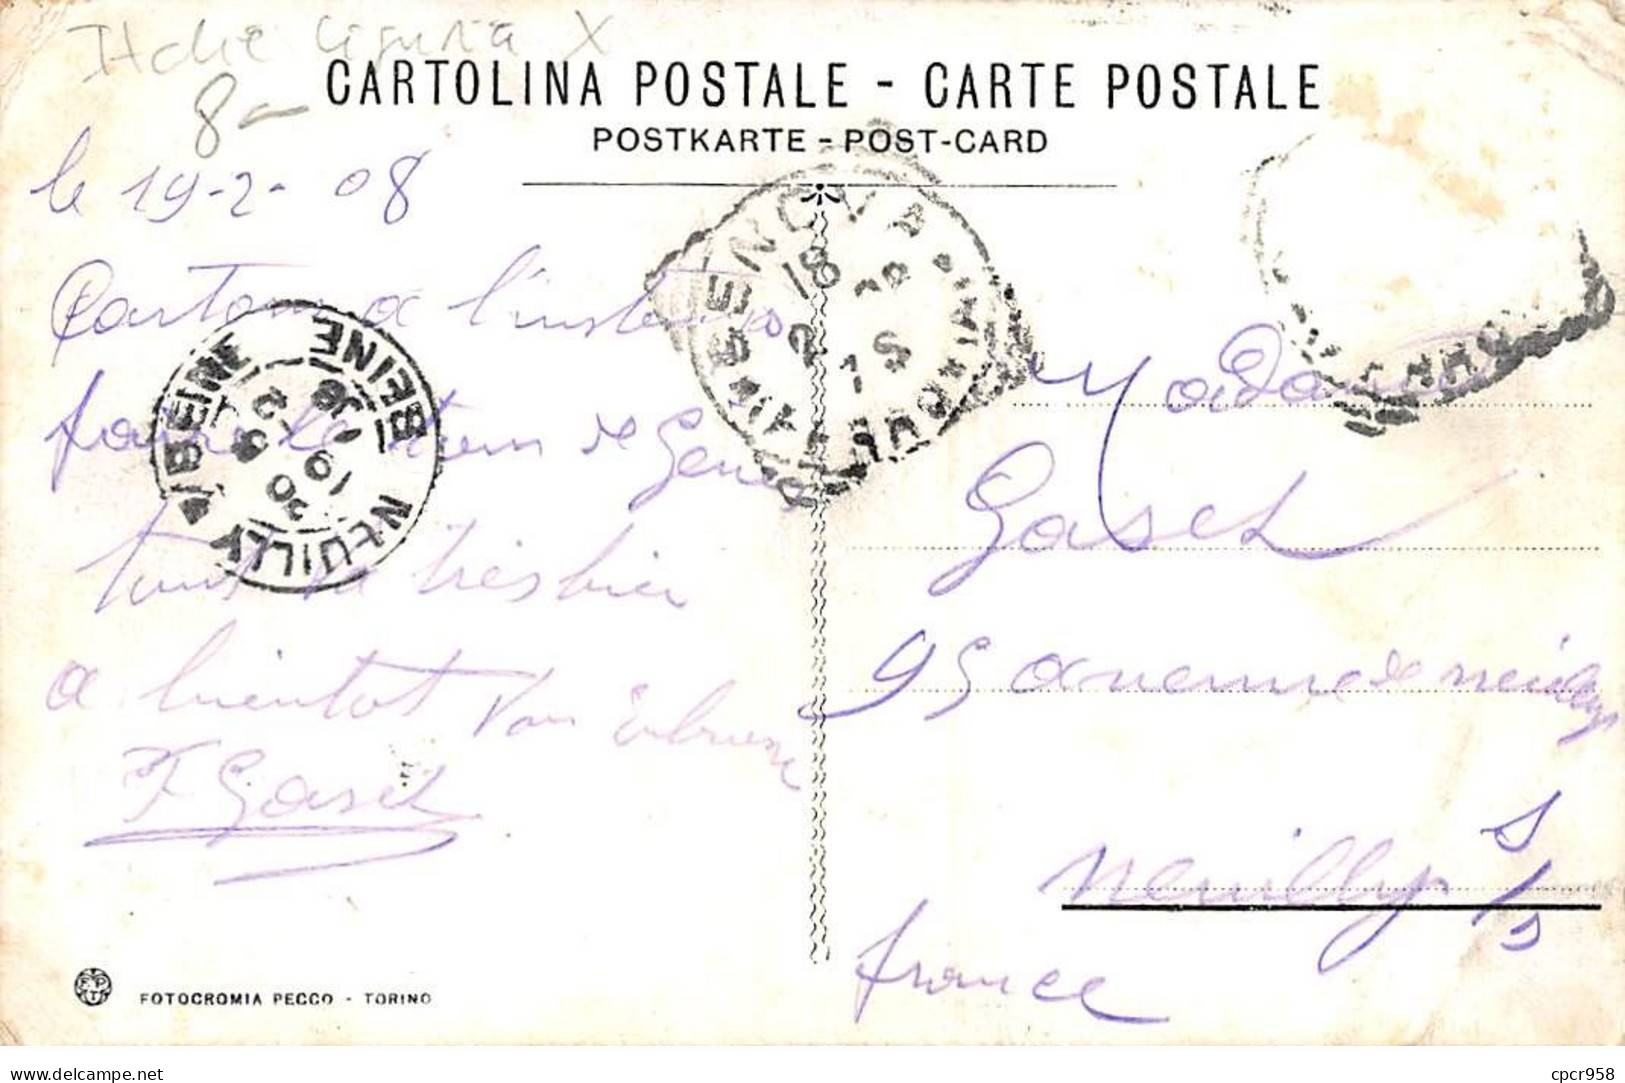 Italie Liguria X
8 -
CARTOLINA POSTALE - CARTE POSTALE
POSTKARTE - POST-CARD
le 19-2-08
Partons a l'instant
pour le train de Genes
tout va très bien
a bientot
F Gasch
Madame
Gasch
95 avenue de neuilly
Neuilly s/s
france
GENOVA
18 2 08
NEUILLY S/ SEINE
FOTOCROMIA PECCO - TORINO
www.delcampe.net
cpcr958